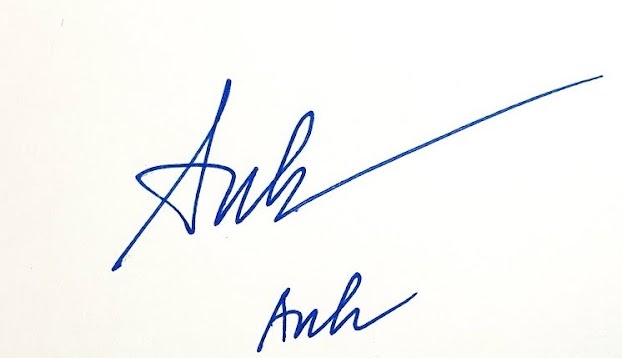 Anh
Anh